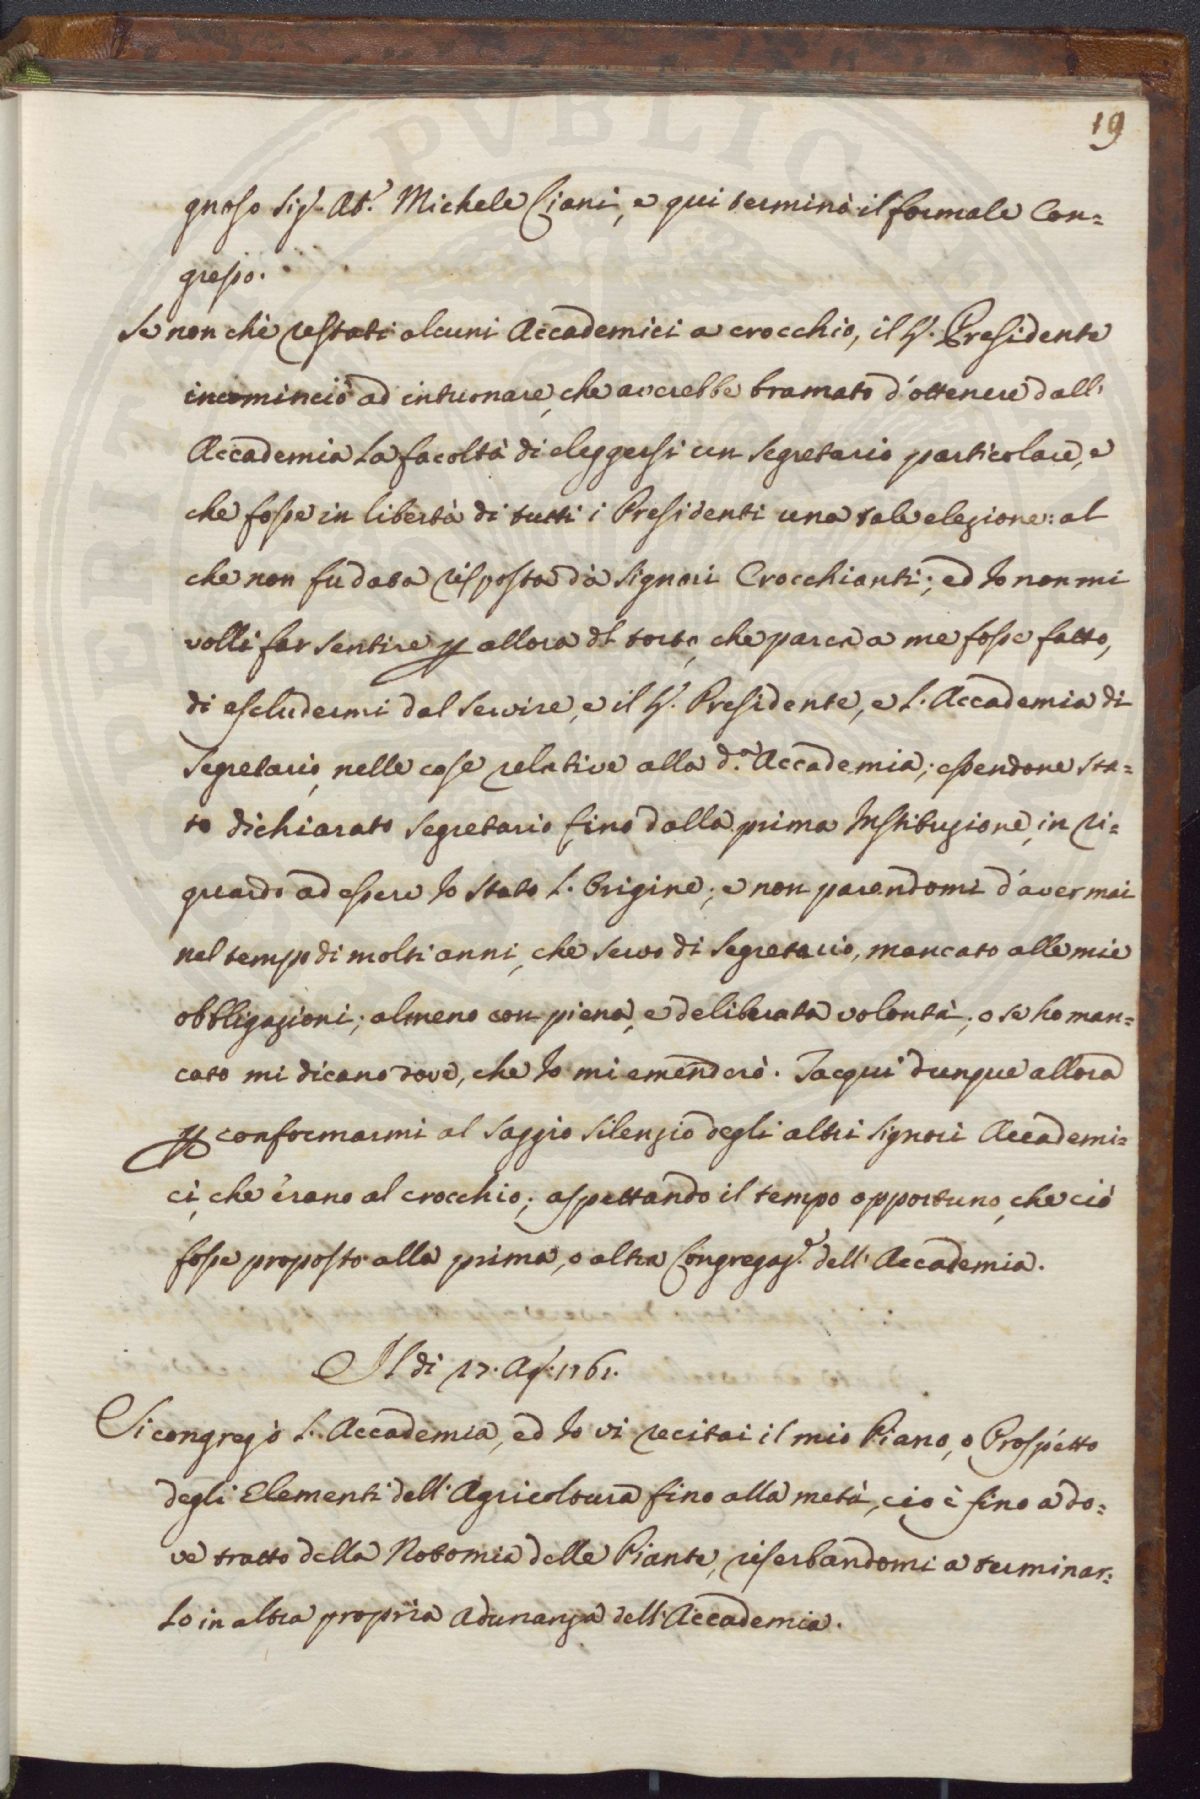 19
gnoso Sig.r Ab.e Michele Ciani, e qui terminò il formale Con=
gresso.
Se non chè restati alcuni Accademici a crocchio, il S.r Presidente
incominciò ad intuonare, che averebbe bramato d'ottenere dall'
Accademia la facoltà di eleggersi un Segretario particolare, e
che fosse in libertà di tutti i Presidenti una tale elezione: al
che non fu data risposta dà Signori Crocchianti; ed Io non mi
volli far sentire p allora del torto, che parea a me fosse fatto,
di escludermi dal servire, e il S.r Presidente, e L'Accademia di
Segretario, nelle cose relative alla d.a Accademia; essendone sta=
to dichiarato Segretario fino dalla prima Instituzione, in ri=
guardo ad essere Io stato L'Origine; e non parendomi d'aver mai
nel tempo di molti anni, che servo di Segretario, mancato alle mie
obbligazioni; almeno con piena, e deliberata volontà; o se ho man=
cato mi dicano dove, che Io mi emenderò. Tacqui dunque allora
p conformarmi al saggio silenzio degli altri Signori Accademi=
ci, che èrano al crocchio; aspettando il tempo opportuno, che ciò
fosse proposto alla prima, o altra Congregaz.e dell'Accademia.
Il di 17. Ag. 1761.
Si congregò L'Accademia, ed Io vi recitai il mio Piano, o Prospetto
degli Elementi dell'Agricoltura fino alla metà, cio è fino a do=
ve tratto della Notomia delle Piante, riserbandomi a terminar=
lo in altra propria Adunanza dell'Accademia.